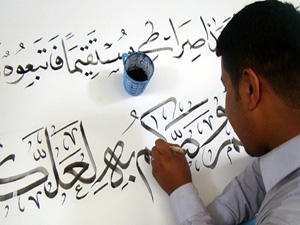 صِرَاطِي مُسْتَقِيمًا فَاتَّبِعُوهُ
وَصَّىكُم بِهِ لَعَلَّكُ